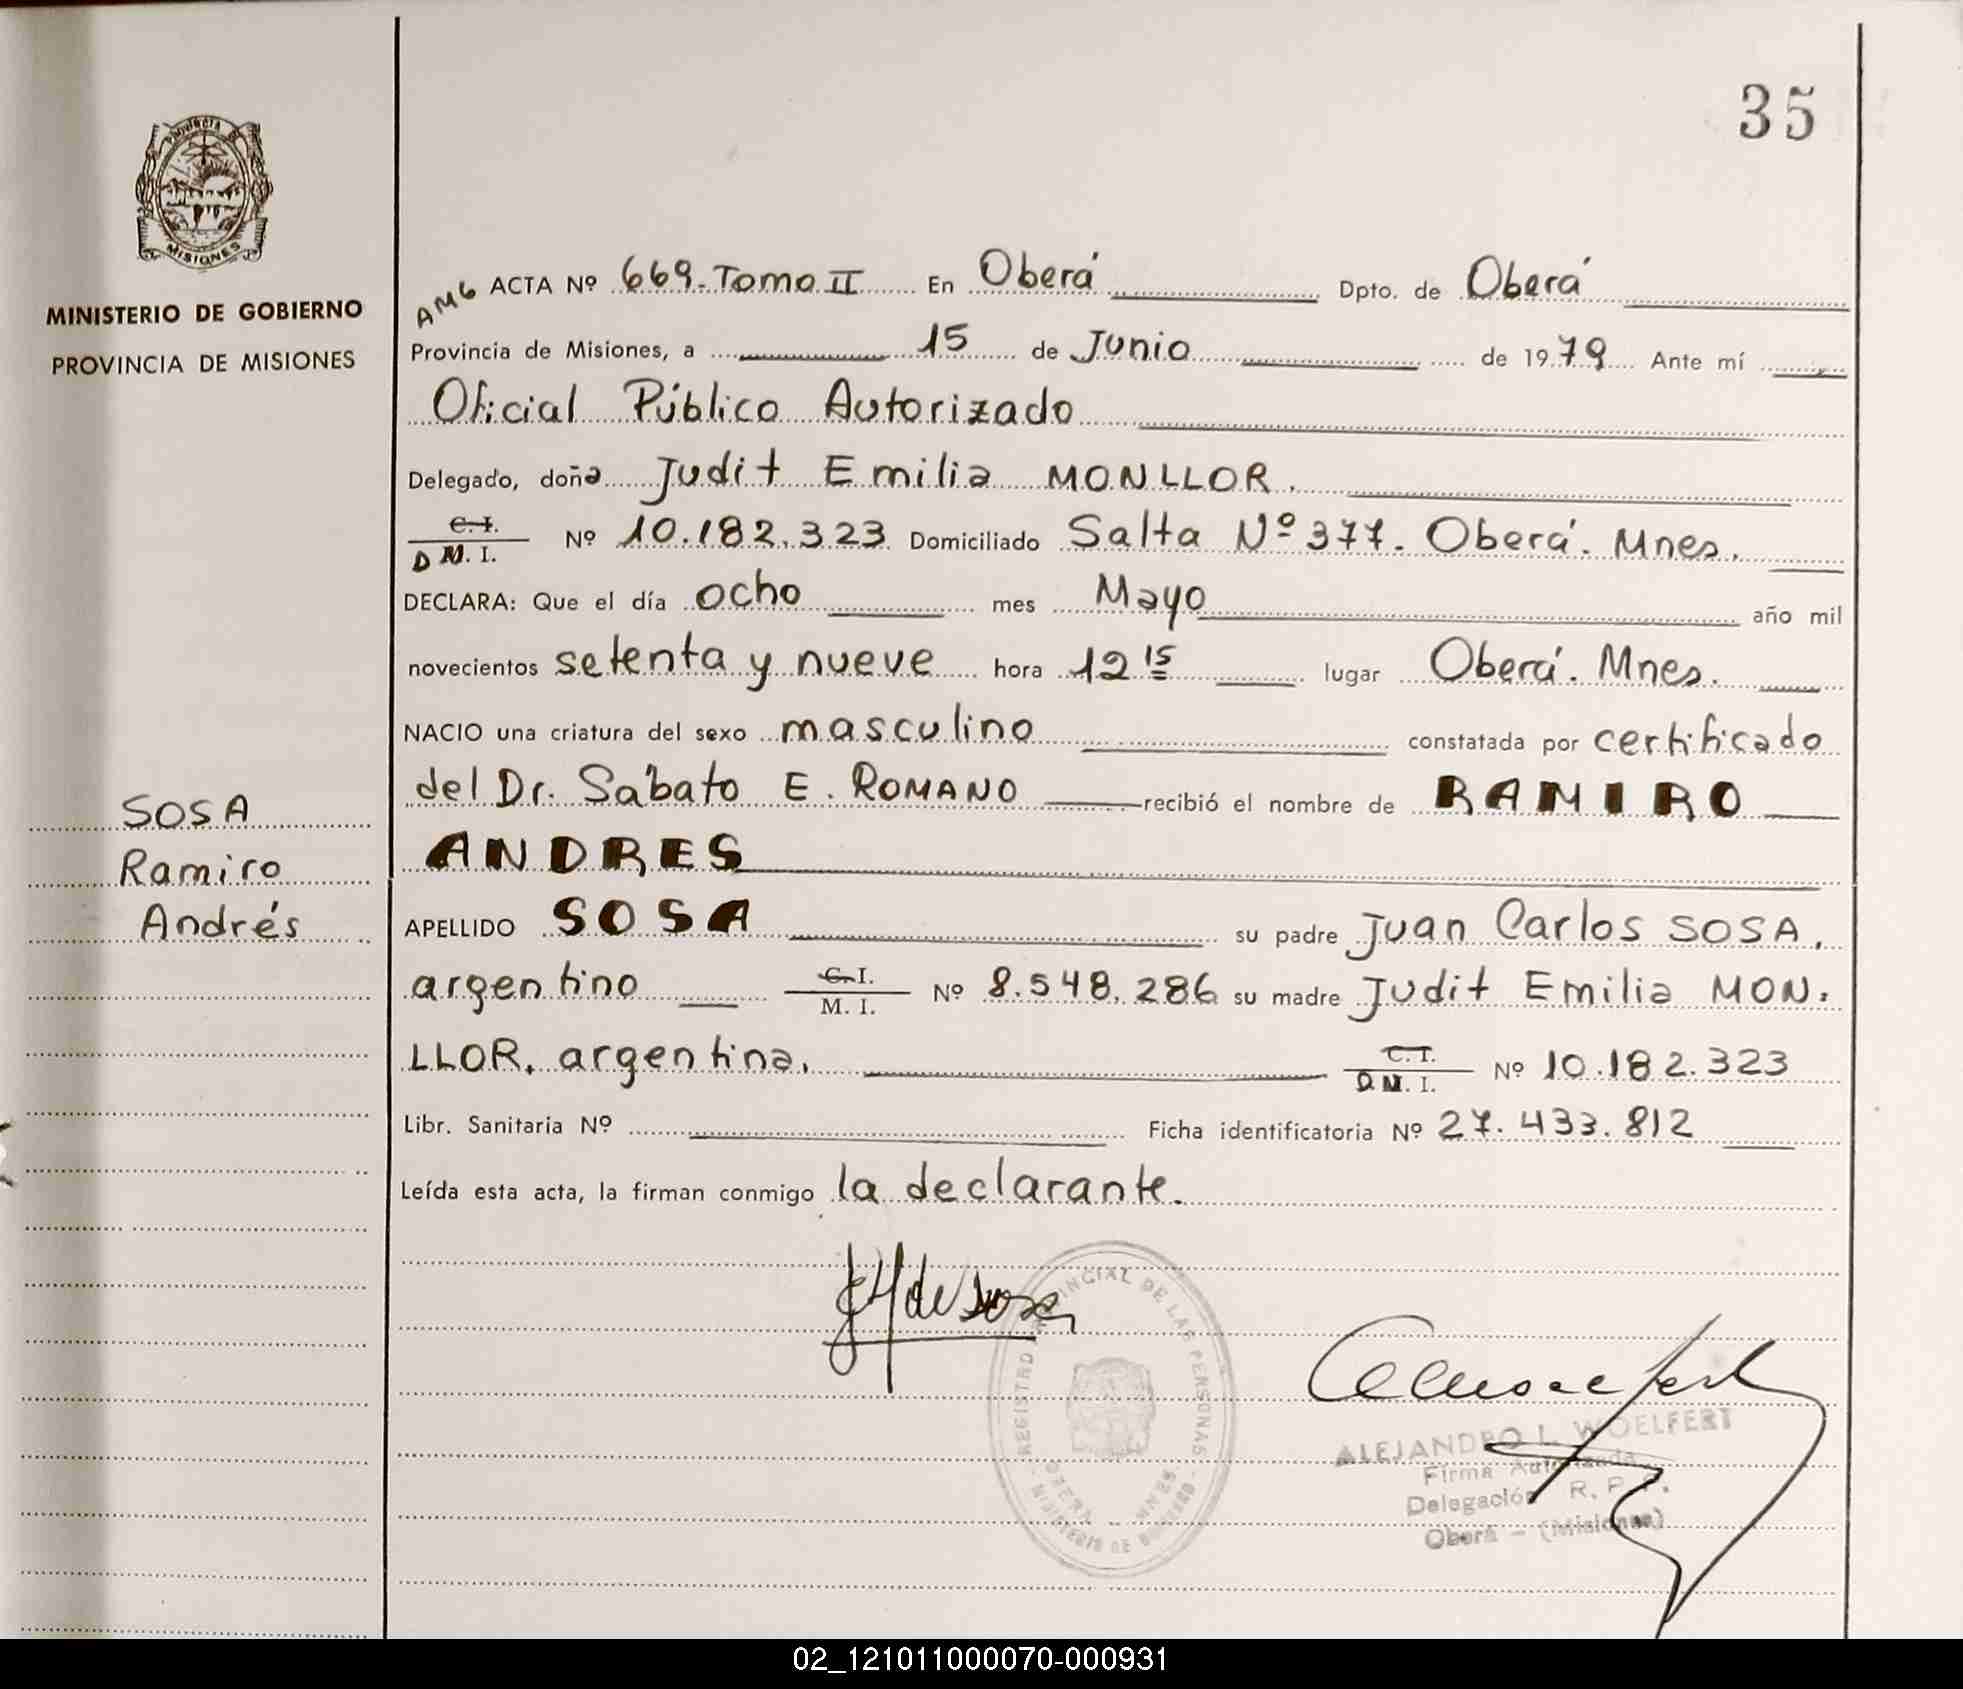 35
PROVINCIA DE
MISIONES
MINISTERIO DE GOBIERNO
PROVINCIA DE MISIONES
AMG ACTA Nº 669. Tomo II En Oberá Dpto. de Oberá
Provincia de Misiones, a 15 de Junio de 1979 Ante mí
Oficial Público Autorizado
Delegado, doña Judit Emilia MONLLOR.
C. I.
D M. I. Nº 10.182.323 Domiciliado Salta Nº 377. Oberá. Mnes.
DECLARA: Que el día ocho mes Mayo año mil
novecientos setenta y nueve hora 12 15 lugar Oberá. Mnes.
NACIO una criatura del sexo masculino constatada por certificado
del Dr. Sábato E. ROMANO recibió el nombre de RAMIRO
ANDRES
APELLIDO SOSA su padre Juan Carlos SOSA,
argentino C. I.
M. I. Nº 8.548.286 su madre Judit Emilia MON.
LLOR, argentina. C. I.
D. M. I. Nº 10.182.323
Libr. Sanitaria Nº Ficha identificatoria Nº 27.433.812
Leída esta acta, la firman conmigo la declarante.
SOSA
Ramiro
Andrés
de Sosa
REGISTRO PROVINCIAL DE LAS PERSONAS
OBERA - MNES.
MINISTERIO DE GOBIERNO
ALEJANDRO L. WOELFERT
Firma Autorizada
Delegación R. P.
Oberá - (Misiones)
02_121011000070-000931